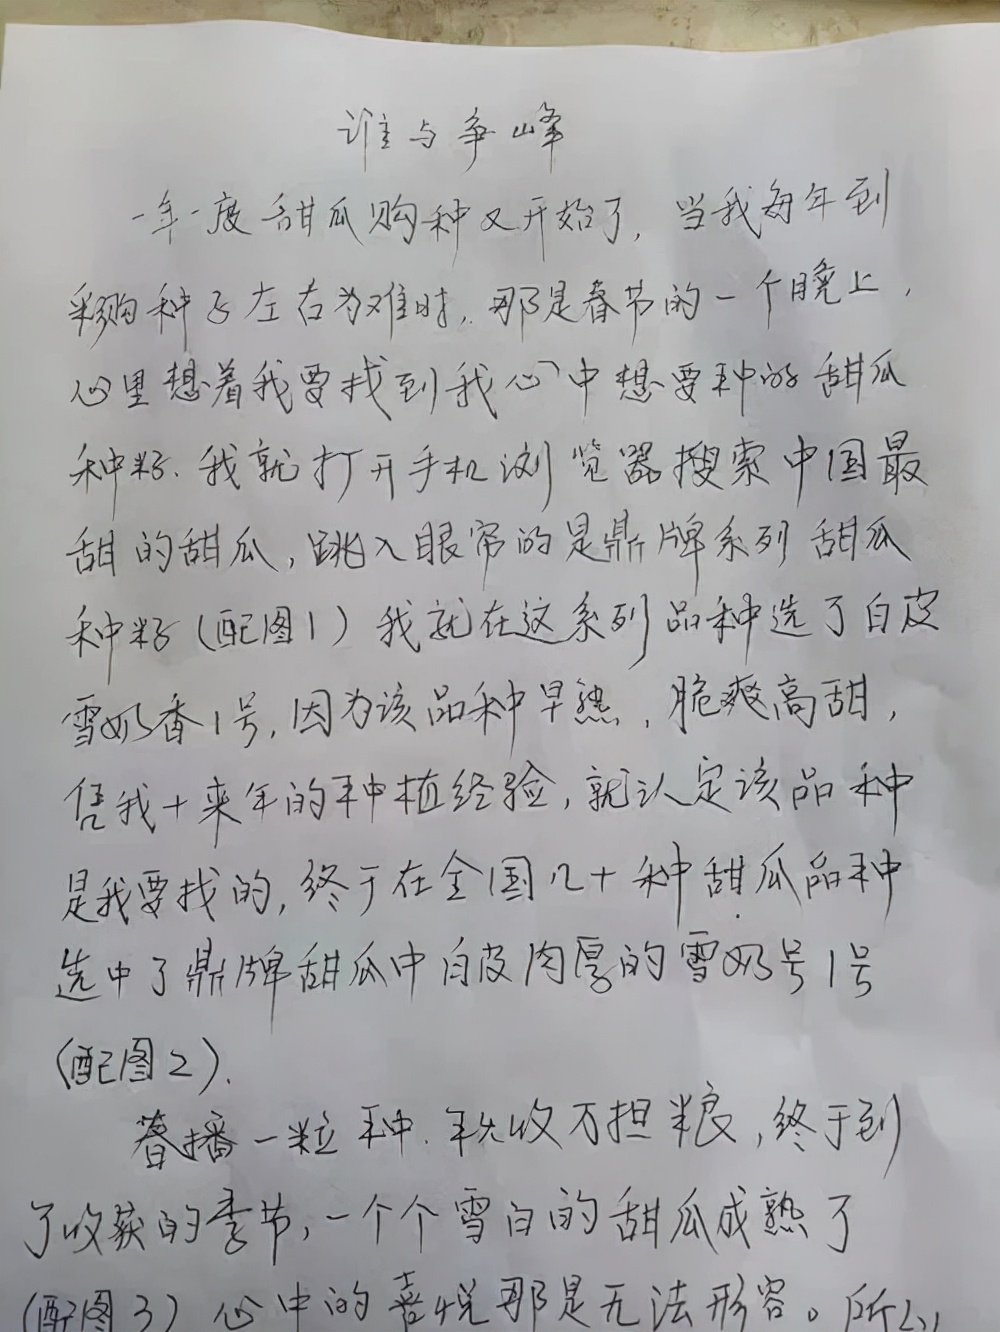 谁与争峰
一年一度甜瓜购种又开始了，当我每年到
采购种子左右为难时，那是春节的一个晚上，
心里想着我要找到我心中想要种的甜瓜
种籽．我就打开手机浏览器搜索中国最
甜的甜瓜，跳入眼帘的是鼎牌系列甜瓜
种籽(配图1)我就在这系列品种选了白皮
雪奶香1号，因为该品种早熟，脆爽高甜，
凭我十来年的种植经验，就认定该品种
是我要找的，终于在全国几十种甜瓜品种
选中了鼎牌甜瓜中白皮肉厚的雪奶号1号
(配图2).
春播一粒种．秋收万担粮，终于到
了收获的季节，一个个雪白的甜瓜成熟了
(配图3)心中的喜悦那是无法形容。所以